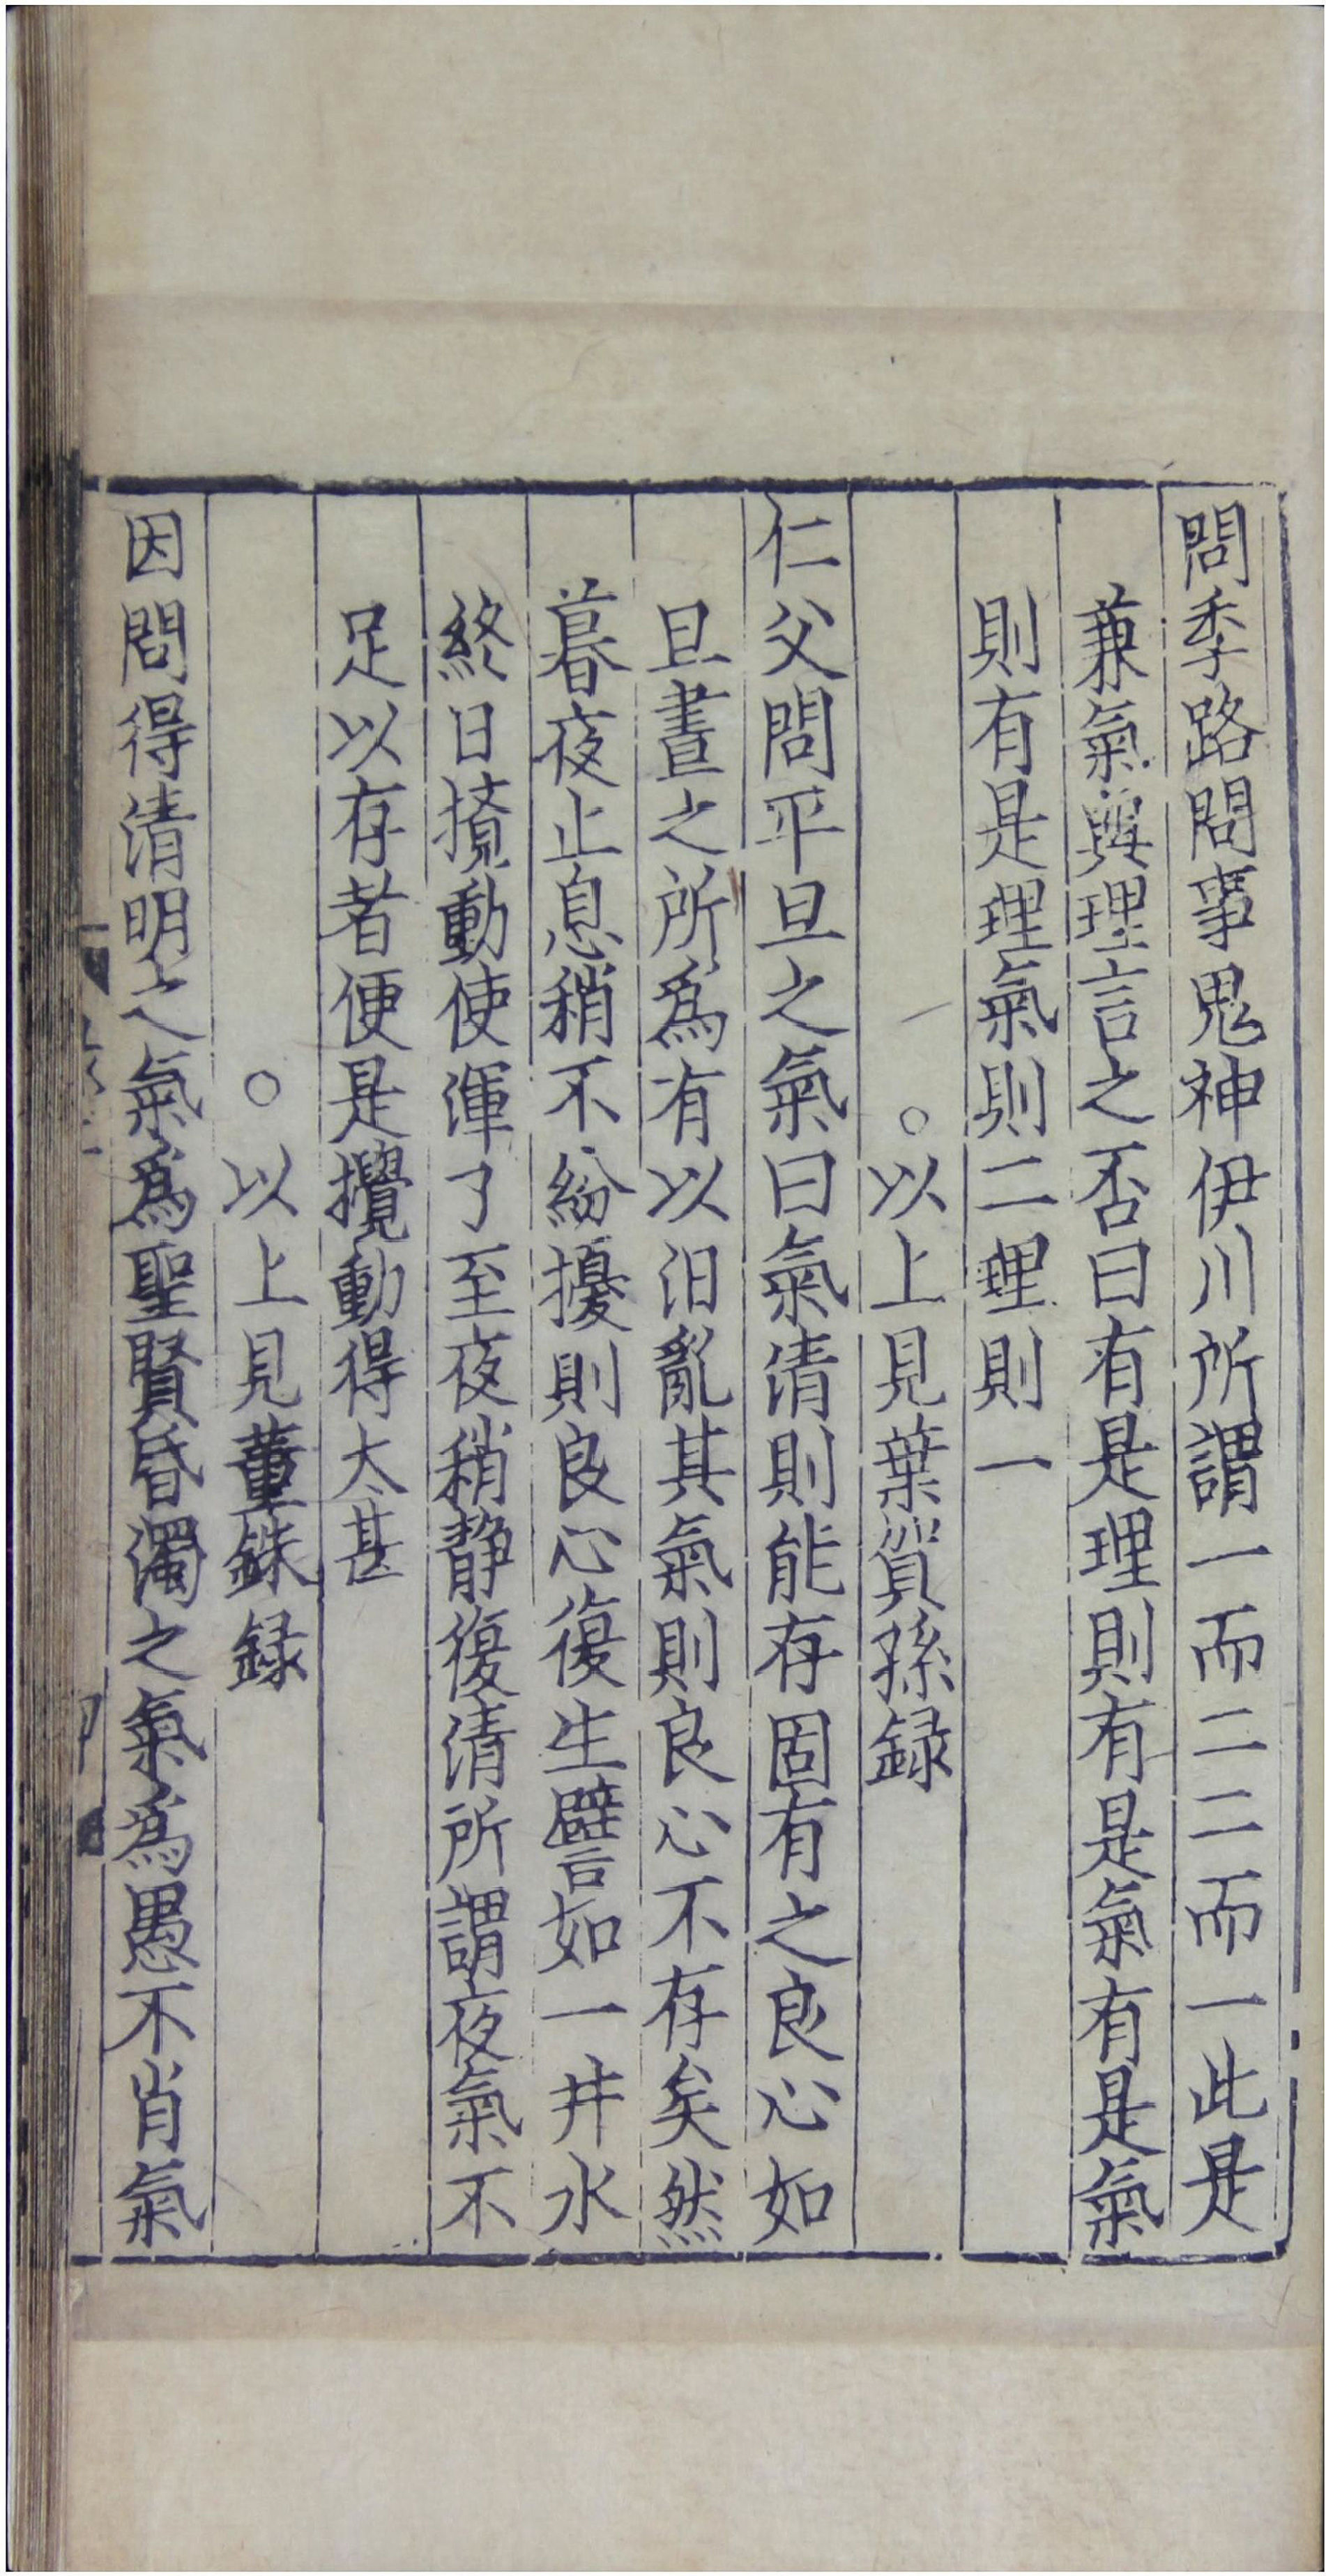 問季路問事鬼神伊川所謂一而二二而一此是
兼氣與理言之否曰有是理則有是氣有是氣
則有是理氣則二理則一
○以上見葉賀孫録
仁父問平旦之氣曰氣清則能存固有之良心如
旦晝之所爲有以汨亂其氣則良心不存矣然
暮夜止息稍不紛擾則良心復生譬如一井水
終日攪動使渾了至夜稍靜復清所謂夜氣不
足以存者便是攪動得太甚
○以上見董銖録
因問得清明之氣爲聖賢昏濁之氣爲愚不肖氣